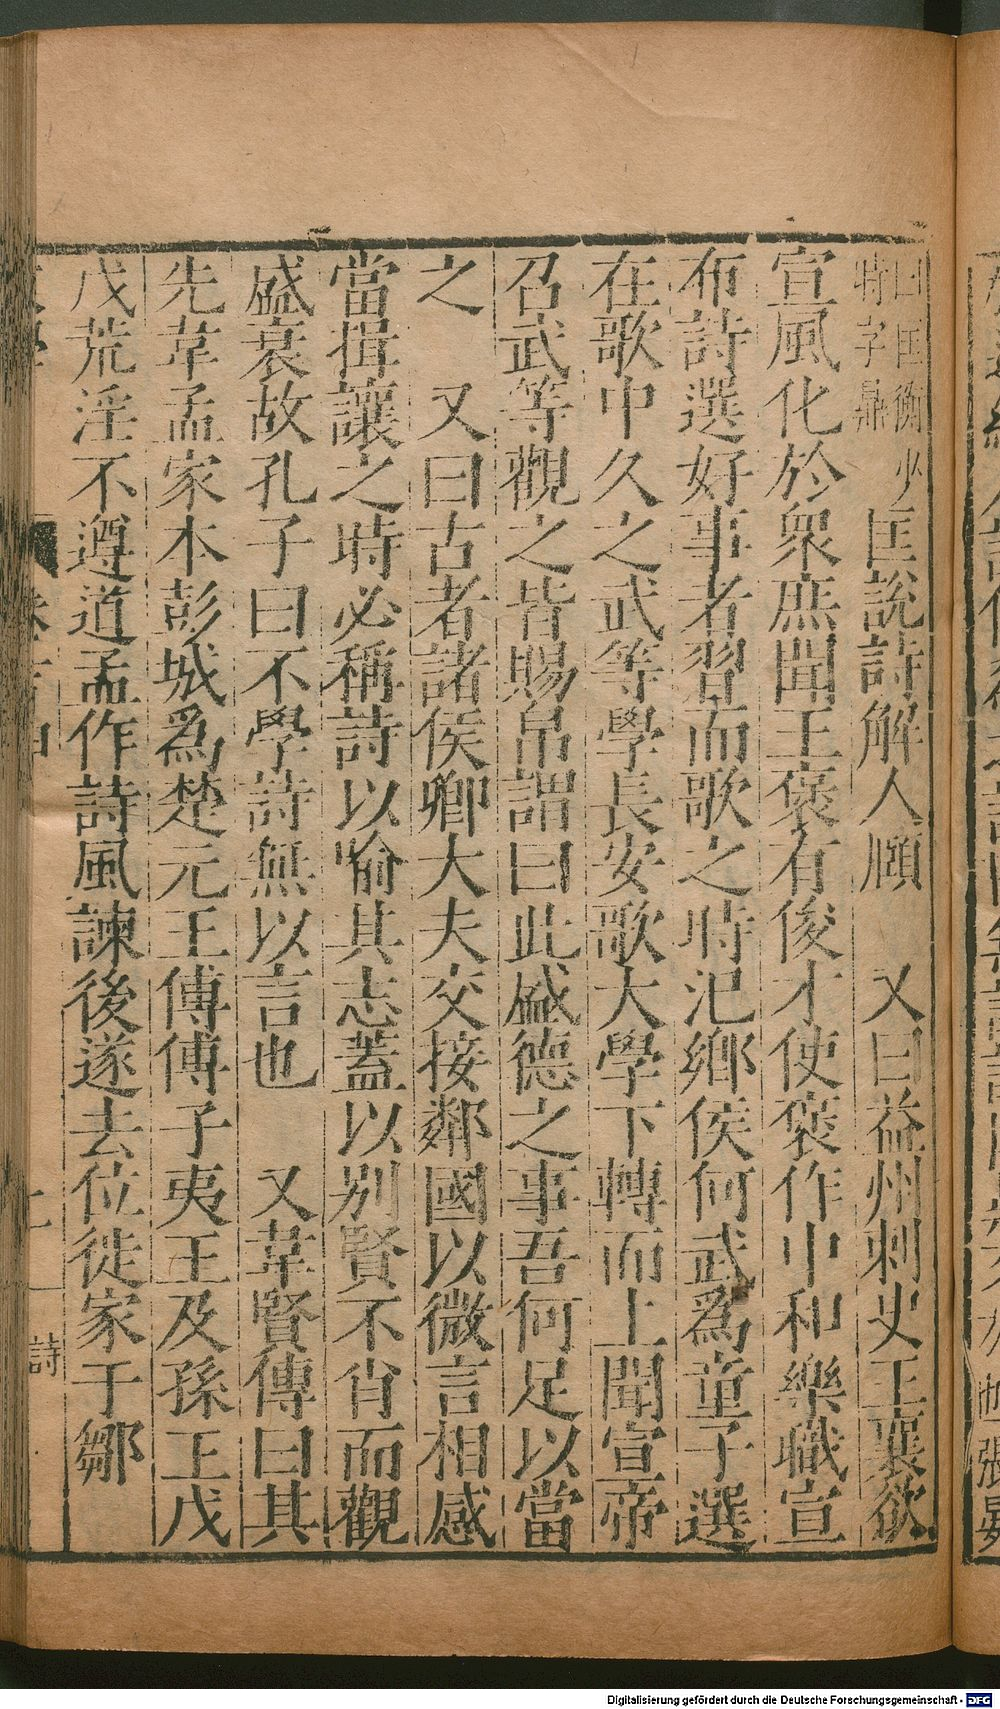 曰匡衡少時字鼎匡說詩解人頤 又曰益州刺史王襄欲
宣風化於衆庶聞王褒有俊才使褒作中和樂職宣
布詩選好事者習而歌之時汜鄉侯何武爲童子選
在歌中久之武等學長安歌大學下轉而上聞宣帝
召武等觀之皆賜帛謂曰此盛德之事吾何足以當
之 又曰古者諸侯卿大夫交接鄰國以微言相感
當揖讓之時必稱詩以喻其志蓋以別賢不肖而觀
盛衰故孔子曰不學詩無以言也 又韋賢傳曰其
先韋孟家本彭城爲楚元王傅傅子夷王及孫王戊
戊荒淫不遵道孟作詩風諫後遂去位徙家于鄒
詩
Digitalisierung gefördert durch die Deutsche Forschungsgemeinschaft - DFG